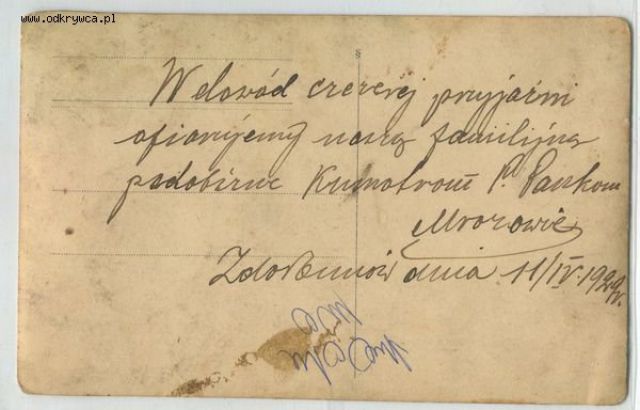 www.odkrywca.pl
W dowód szczerej przyjaźni
ofiarujemy naszą familijną
podobiznę Kumotrom P.
Mrozowie
dnia 11/IV. 1929r.